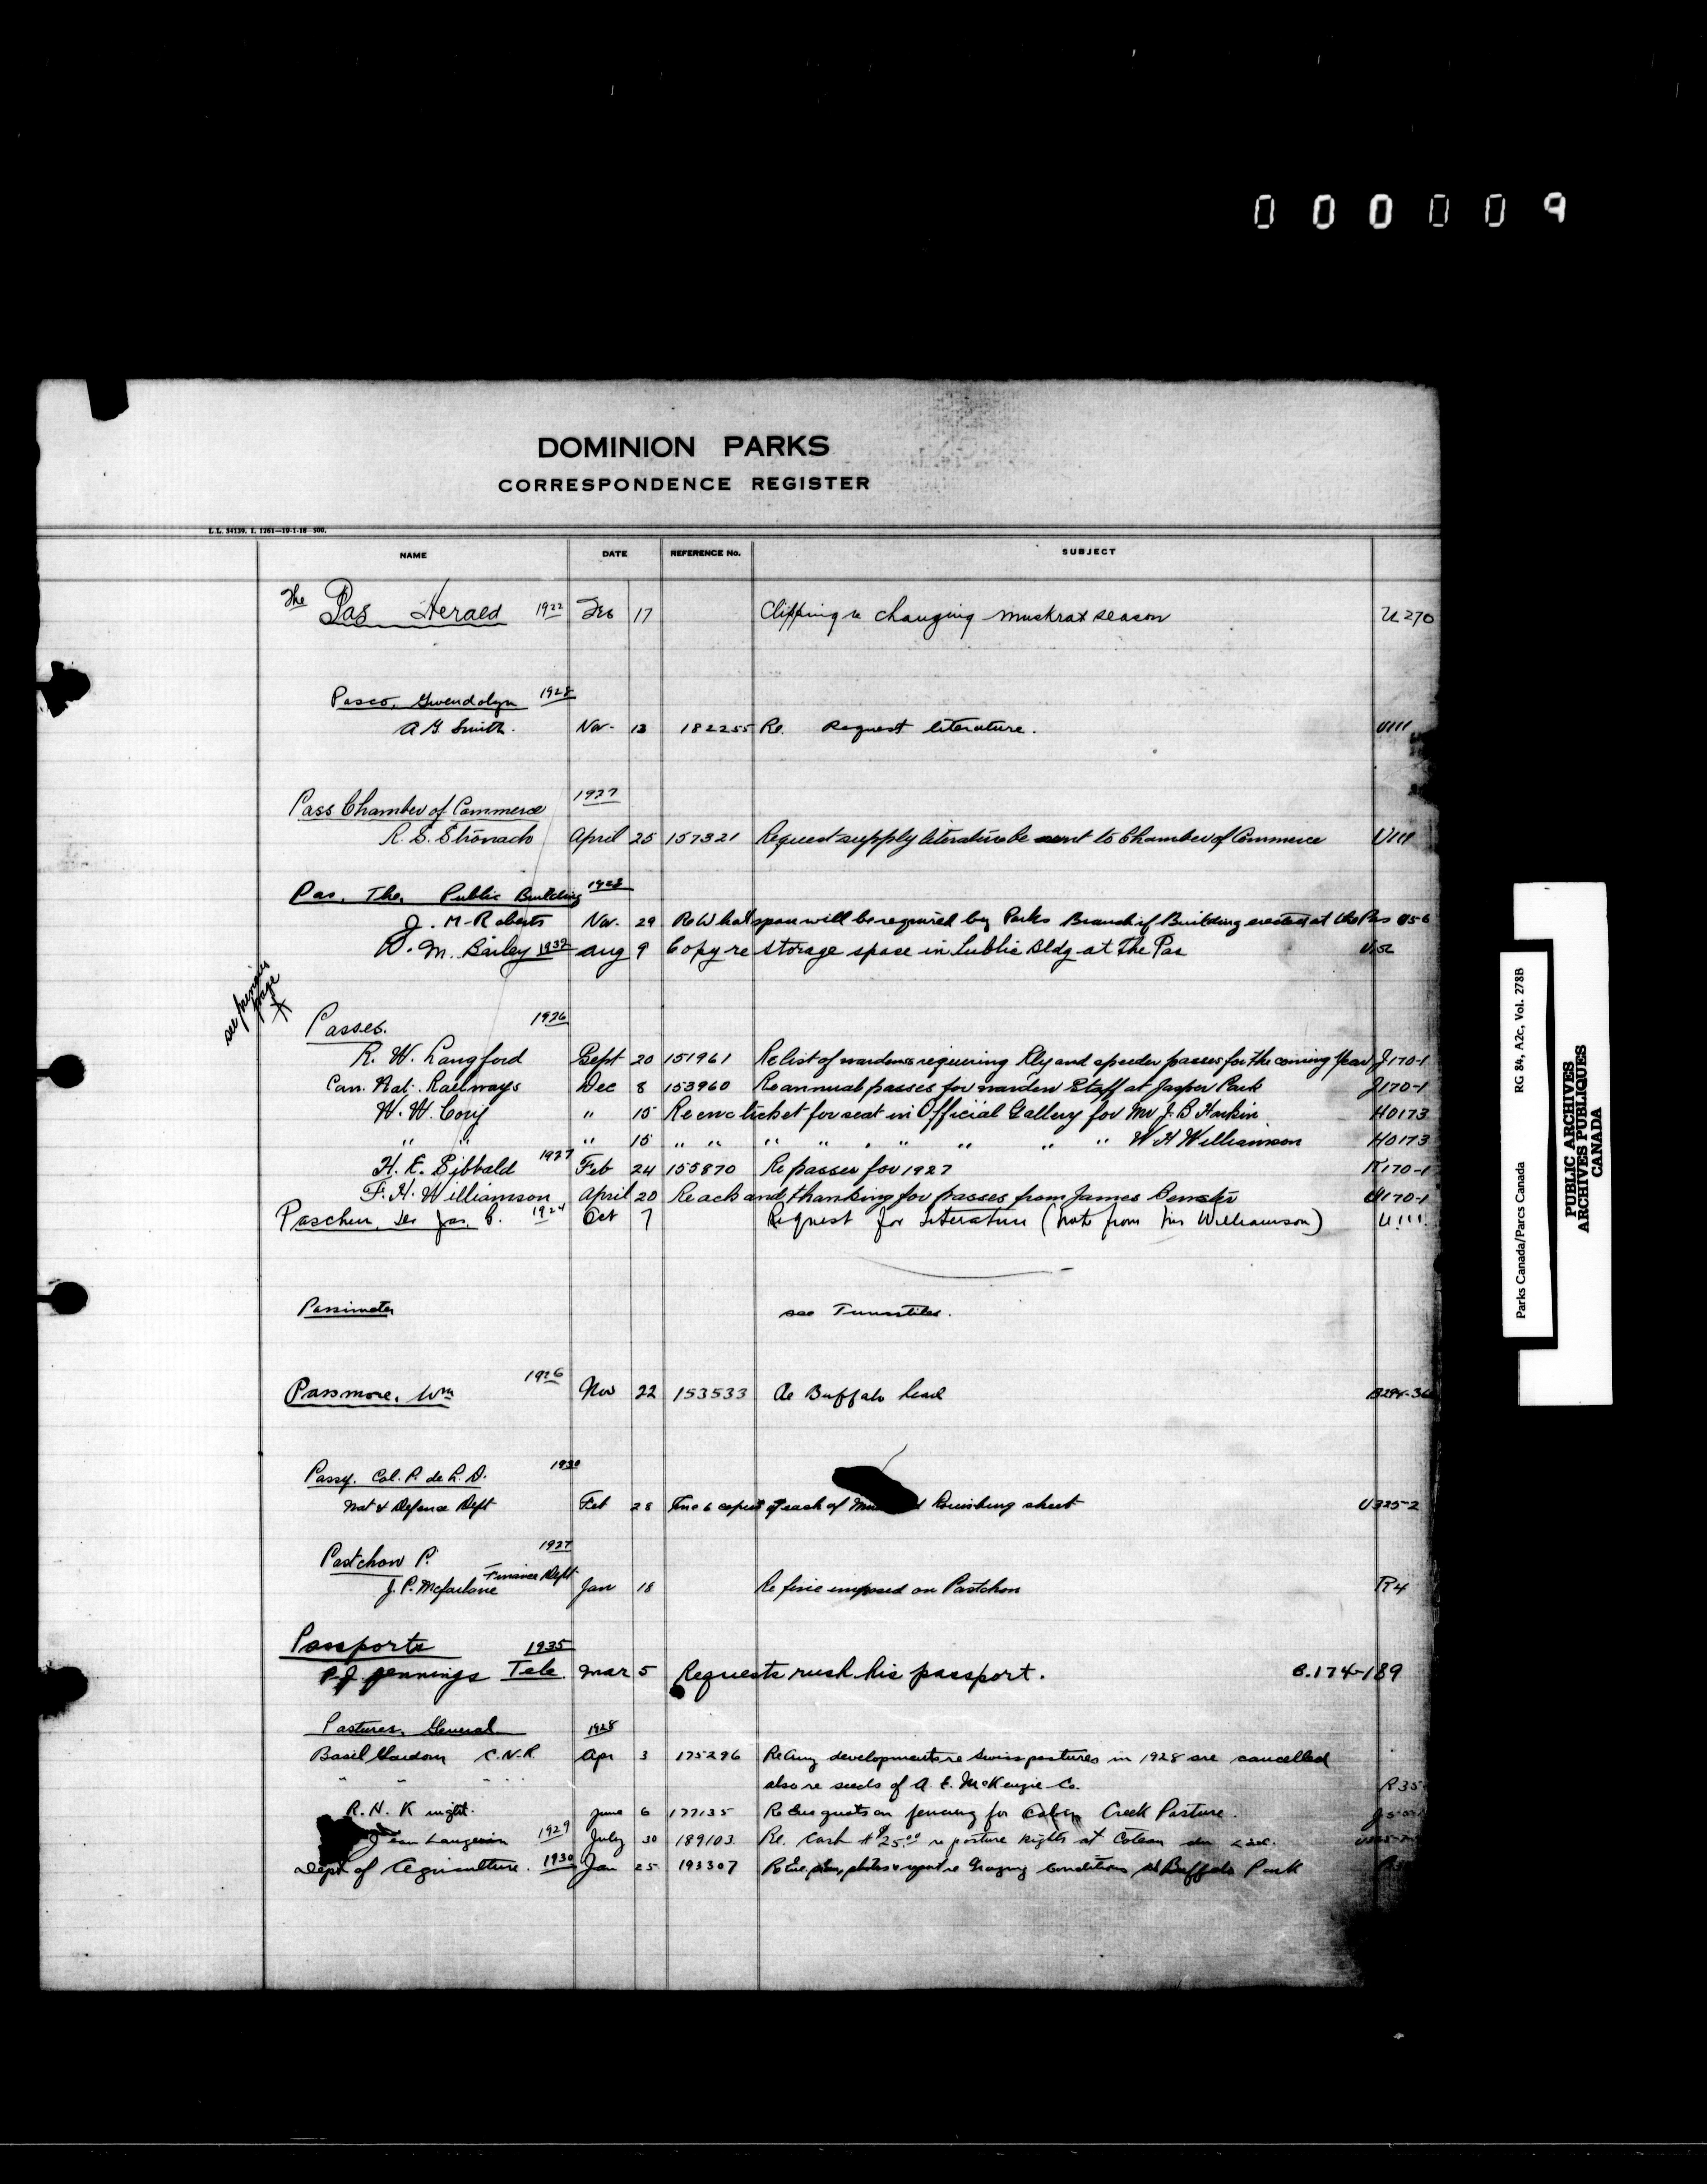 000009
DOMINION PARKS
CORRESPONDENCE REGISTER
L.L. 34139. I. 1261—19-1-18 500.
NAME DATE REFERENCE No. SUBJECT
The Pas Herald 1922 Feb 17 Clipping re changing muskrat season U 270
Pasco, Gwendolyn 1928
A G Smith. Nov. 13 182255 Re. Request literature. U111
Pass Chamber of Commerce 1927
R. S. Stronach April 25 157321 Request supply literature be sent to Chamber of Commerce U111
Pas, The, Public Building 1928
J. M. Roberts Nov. 29 Re What space will be required by Parks Branch if Building erected at the Pas U56
D. M. Bailey 1932 Aug 9 Copy re storage space in Public Bldg at The Pas U56
see previous page X
Passes. 1926
R. W. Langford Sept 20 151961 Re list of wardens requiring Rly and speeder passes for the coming year J170-1
Can. Nat. Railways Dec 8 153960 Re annual passes for warden Staff at Jasper Park J170-1
W. W. Cory " 15 Re enc ticket for seat in Official Gallery for Mr J. B Harkin H0173
" " " 15 " " " " " " " " " W H Williamson H0173
H. E. Sibbald 1927 Feb 24 155870 Re passes for 1927 K170-1
F. H. Williamson April 20 Re ack and thanking for passes from James U170-1
Paschen, Jas. C. 1924 Oct 7 Request for Literature (note from Mr Williamson) U111.
Passimeter see Turnstiles.
Passmore, Wm 1926 Nov 22 153533 Re Buffalo head B294-36
Passy. Col. P. de L. D. 1930
Nat & Defence Dept Feb 28 Enc 6 copies of each of Louisburg sheet U325-2
Pastchow P. 1927
J. P. McFarlane Finance Dept Jan 18 Re fine imposed on Pastchow R4
Passports 1935
P. J. Jennings Tele. Mar 5 Requests rush his passport. B.174-189
Pastures, General 1928
Basil Gardom C.N.R. Apr 3 175296 Re Any developments re Swiss pastures in 1928 are cancelled
" " " " " also re seeds of A. E. McKenzie Co. R35
R. H. Knight. June 6 177135 Re fencing for Creek Pasture.
Jean Langevin 1929 July 30 189103 Re. Cash $25.00 re pasture rights at Coteau du Lac.
Dept of Agriculture. 1930 Jan 25 193307 Re Enc plan, photos & report re Grazing Conditions at Buffalo Park
Parks Canada/Parcs Canada RG 84, A2c, Vol. 278B
PUBLIC ARCHIVES
ARCHIVES PUBLIQUES
CANADA